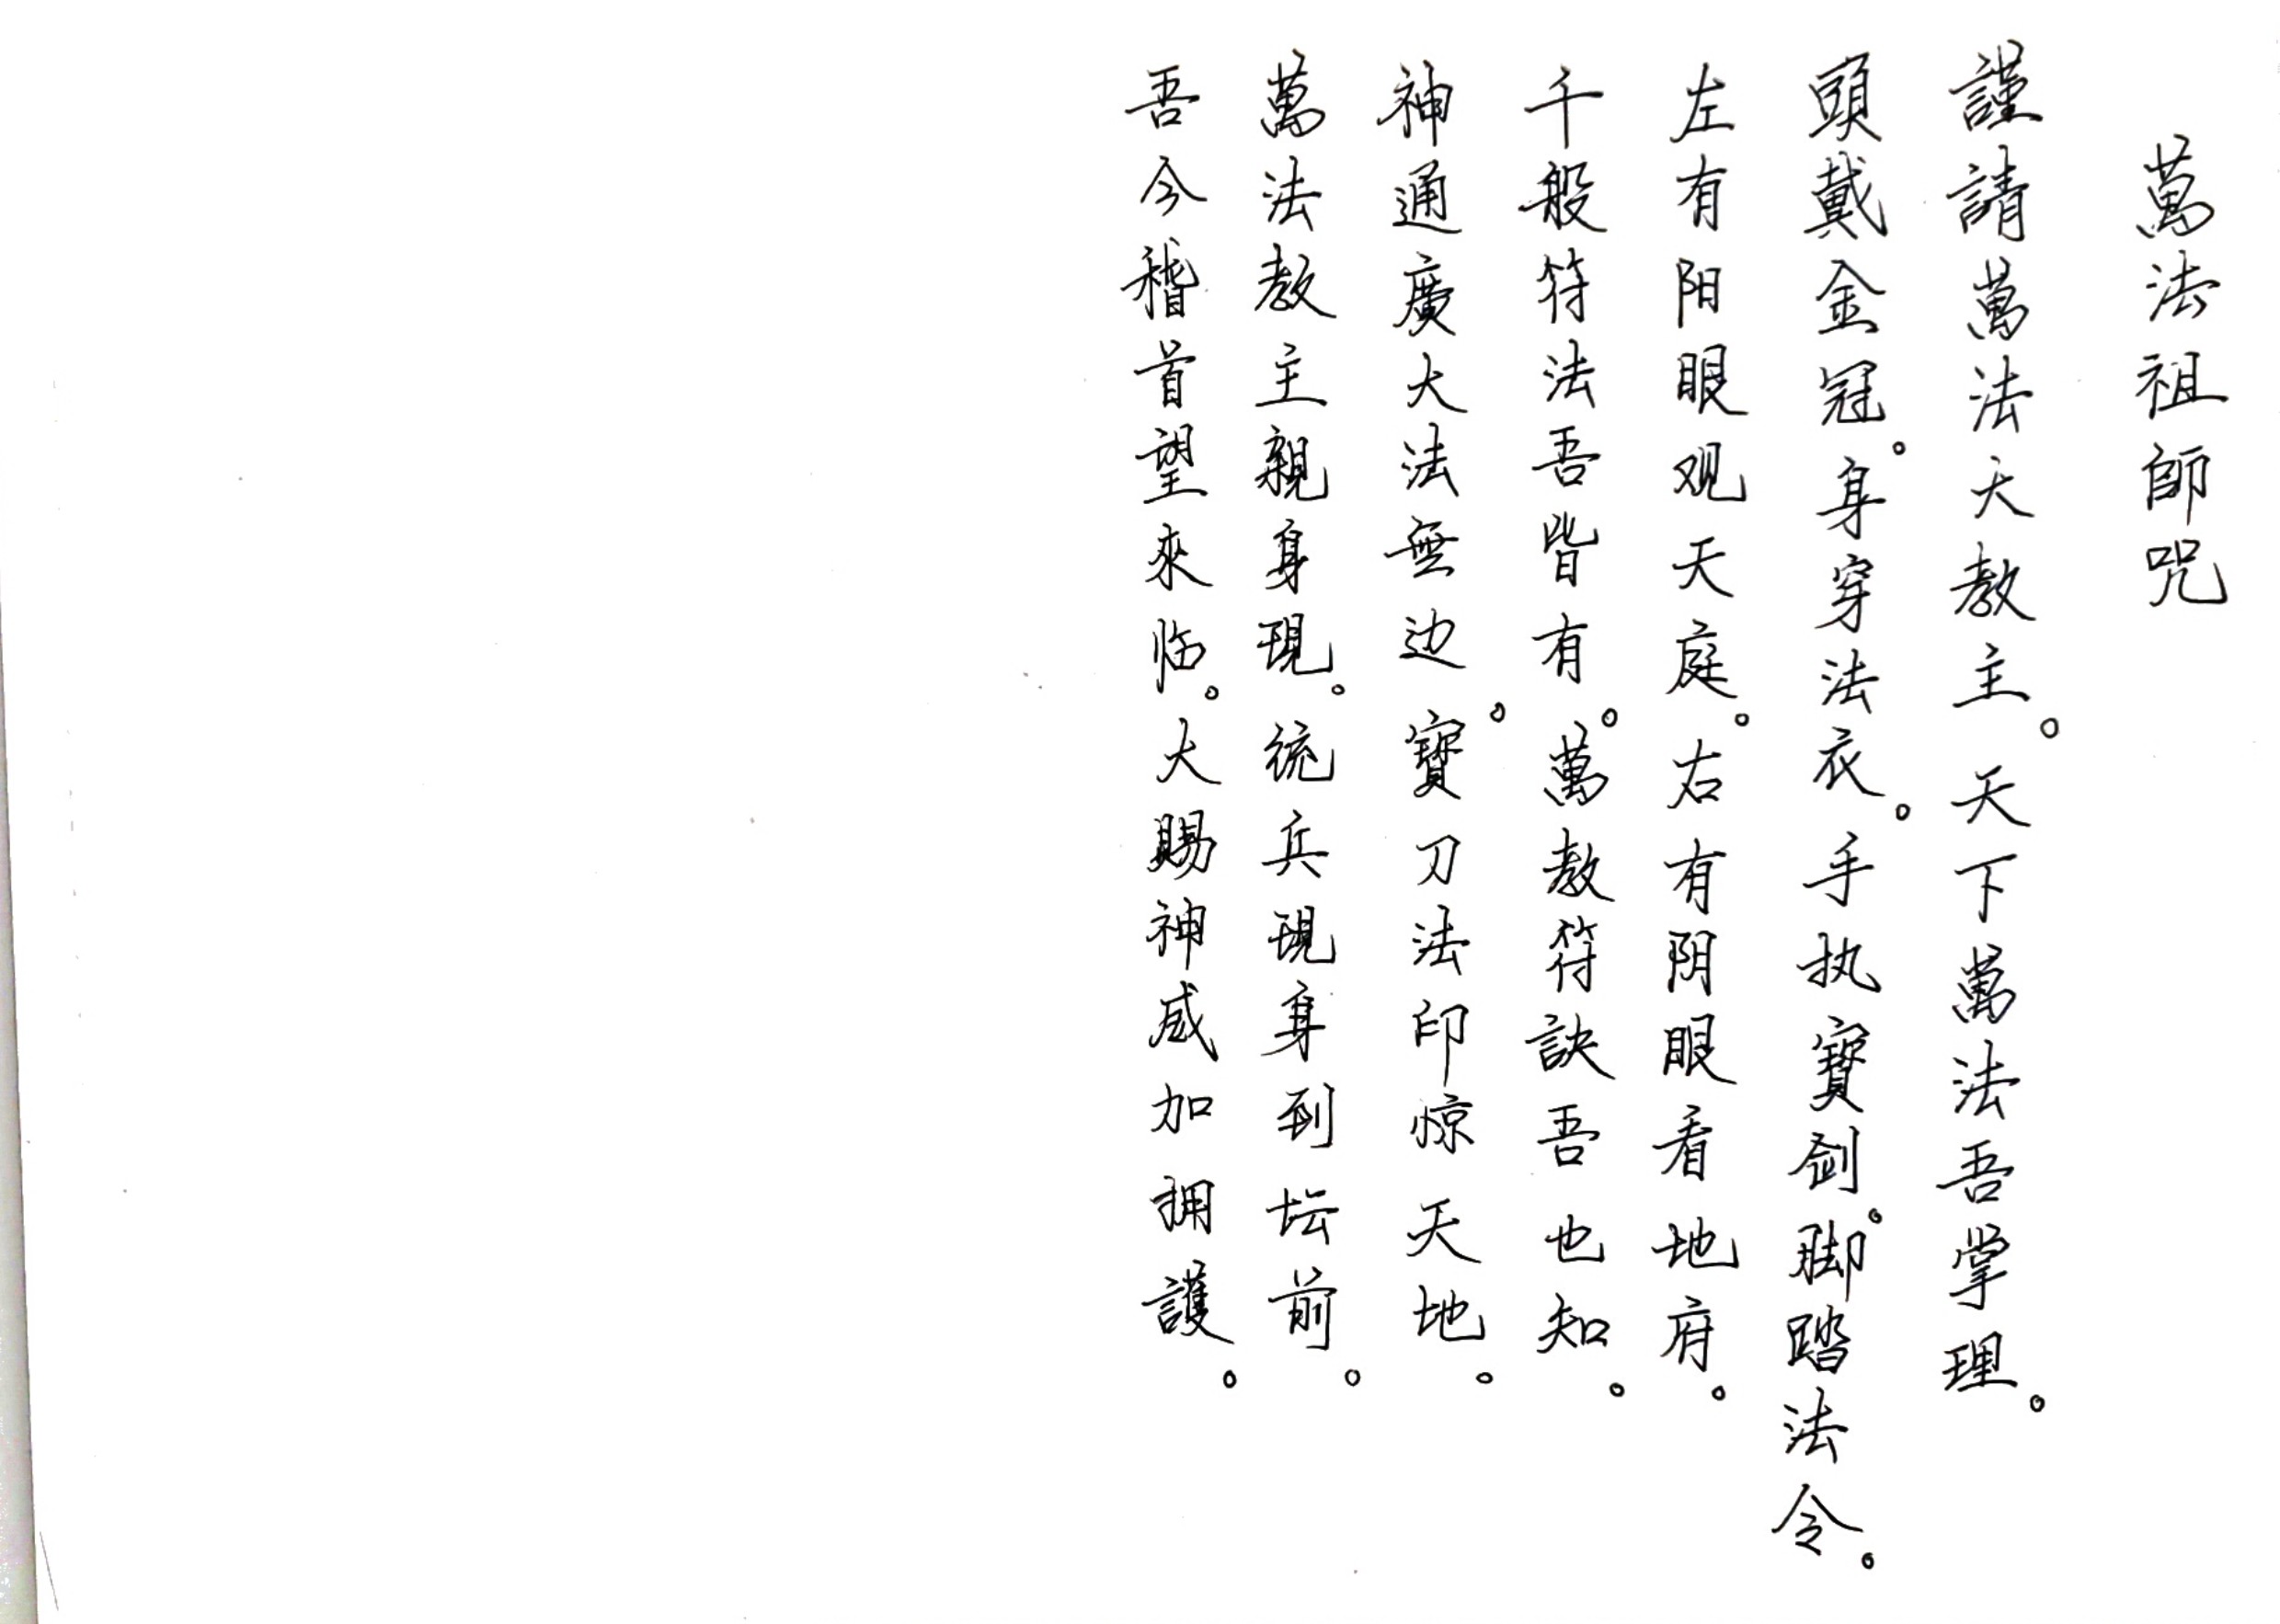 萬法祖師咒
謹請萬法大教主。天下萬法吾掌理。
頭戴金冠。身穿法衣。手执寶劍。脚踏法令。
左有阳眼观天庭。右有阴眼看地府。
千般符法吾皆有。萬教符訣吾也知。
神通廣大法無边。寶刀法印惊天地。
萬法教主親身現。統兵現身到坛前。
吾今稽首望來临。大賜神威加拥護。